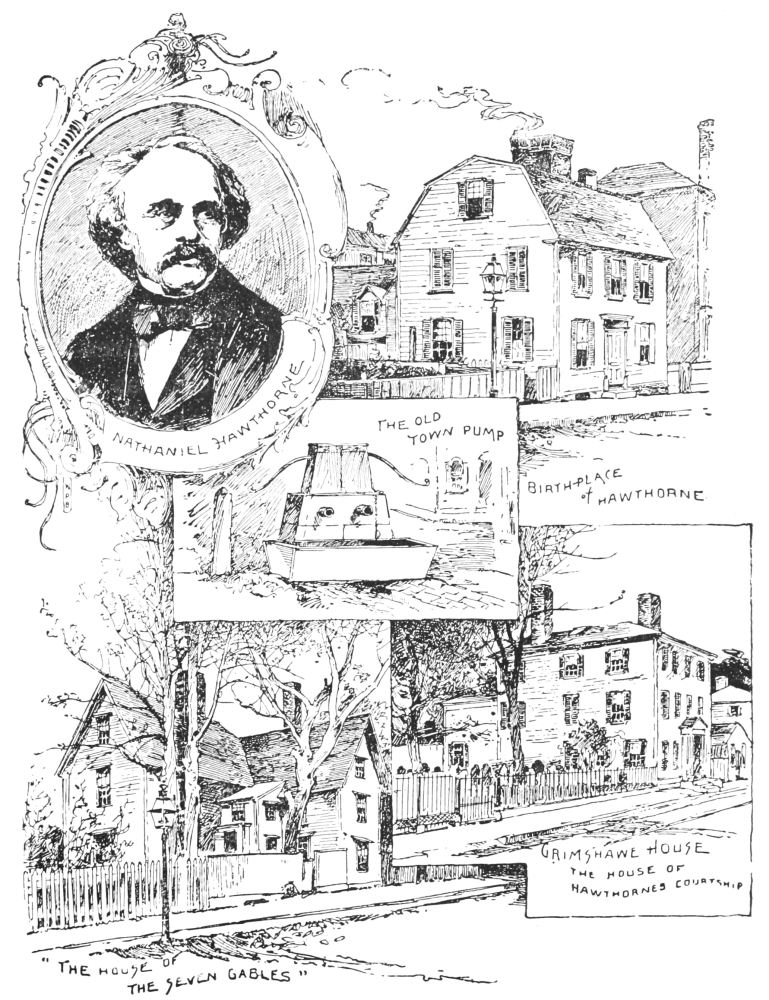 NATHANIEL HAWTHORNE
THE OLD
TOWN PUMP
BIRTH-PLACE
of HAWTHORNE.
GRIMSHAWE HOUSE
THE HOUSE OF
HAWTHORNES COURTSHIP
"THE HOUSE OF
THE SEVEN GABLES"